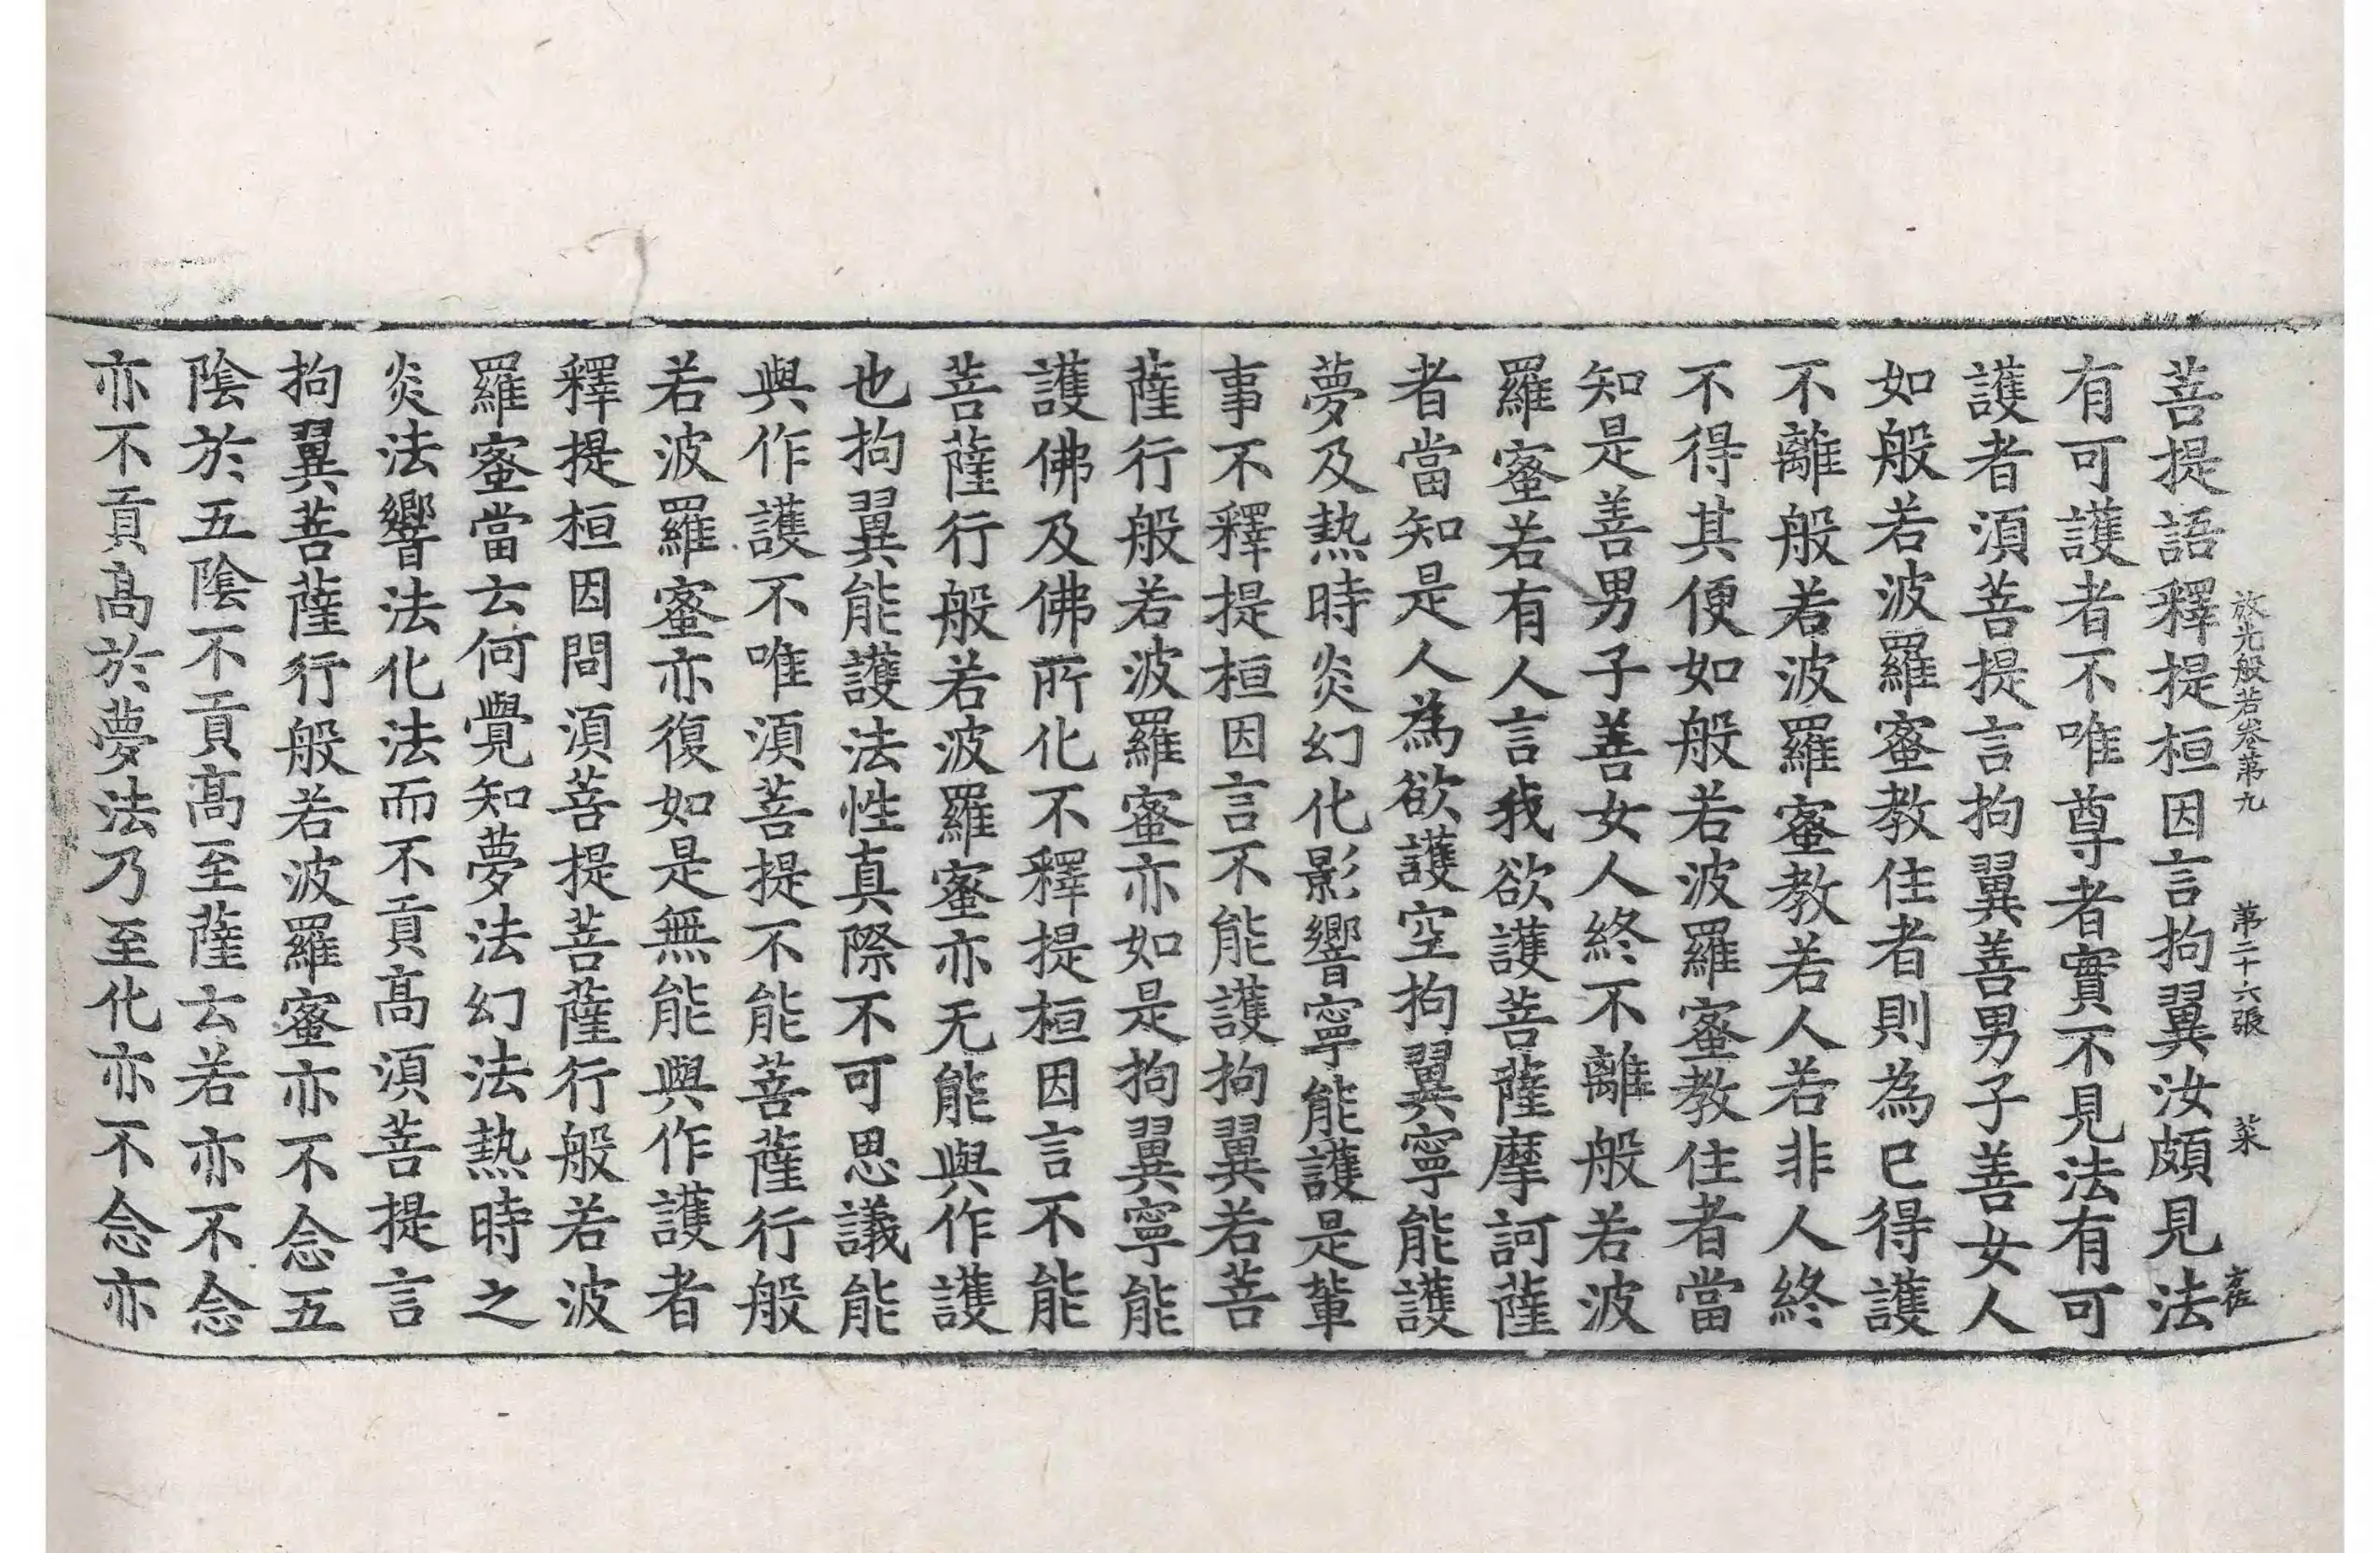 放光般若卷第九　第二十六張　菜
菩提語釋提桓因言拘翼汝頗見法
有可護者不唯尊者實不見法有可
護者須菩提言拘翼善男子善女人
如般若波羅蜜教住者則為已得護
不離般若波羅蜜教若人若非人終
不得其便如般若波羅蜜教住者當
知是善男子善女人終不離般若波
羅蜜若有人言我欲護菩薩摩訶薩
者當知是人為欲護空拘翼寧能護
夢及熱時炎幻化影響寧能護是輩
事不釋提桓因言不能護拘翼若菩
薩行般若波羅蜜亦如是拘翼寧能
護佛及佛所化不釋提桓因言不能
菩薩行般若波羅蜜亦无能與作護
也拘翼能護法性真際不可思議能
與作護不唯須菩提不能菩薩行般
若波羅蜜亦復如是無能與作護者
釋提桓因問須菩提菩薩行般若波
羅蜜當云何覺知夢法幻法熱時之
炎法響法化法而不貢高須菩提言
拘翼菩薩行般若波羅蜜亦不念五
陰於五陰不貢高至薩云若亦不念
亦不貢高於夢法乃至化亦不念亦